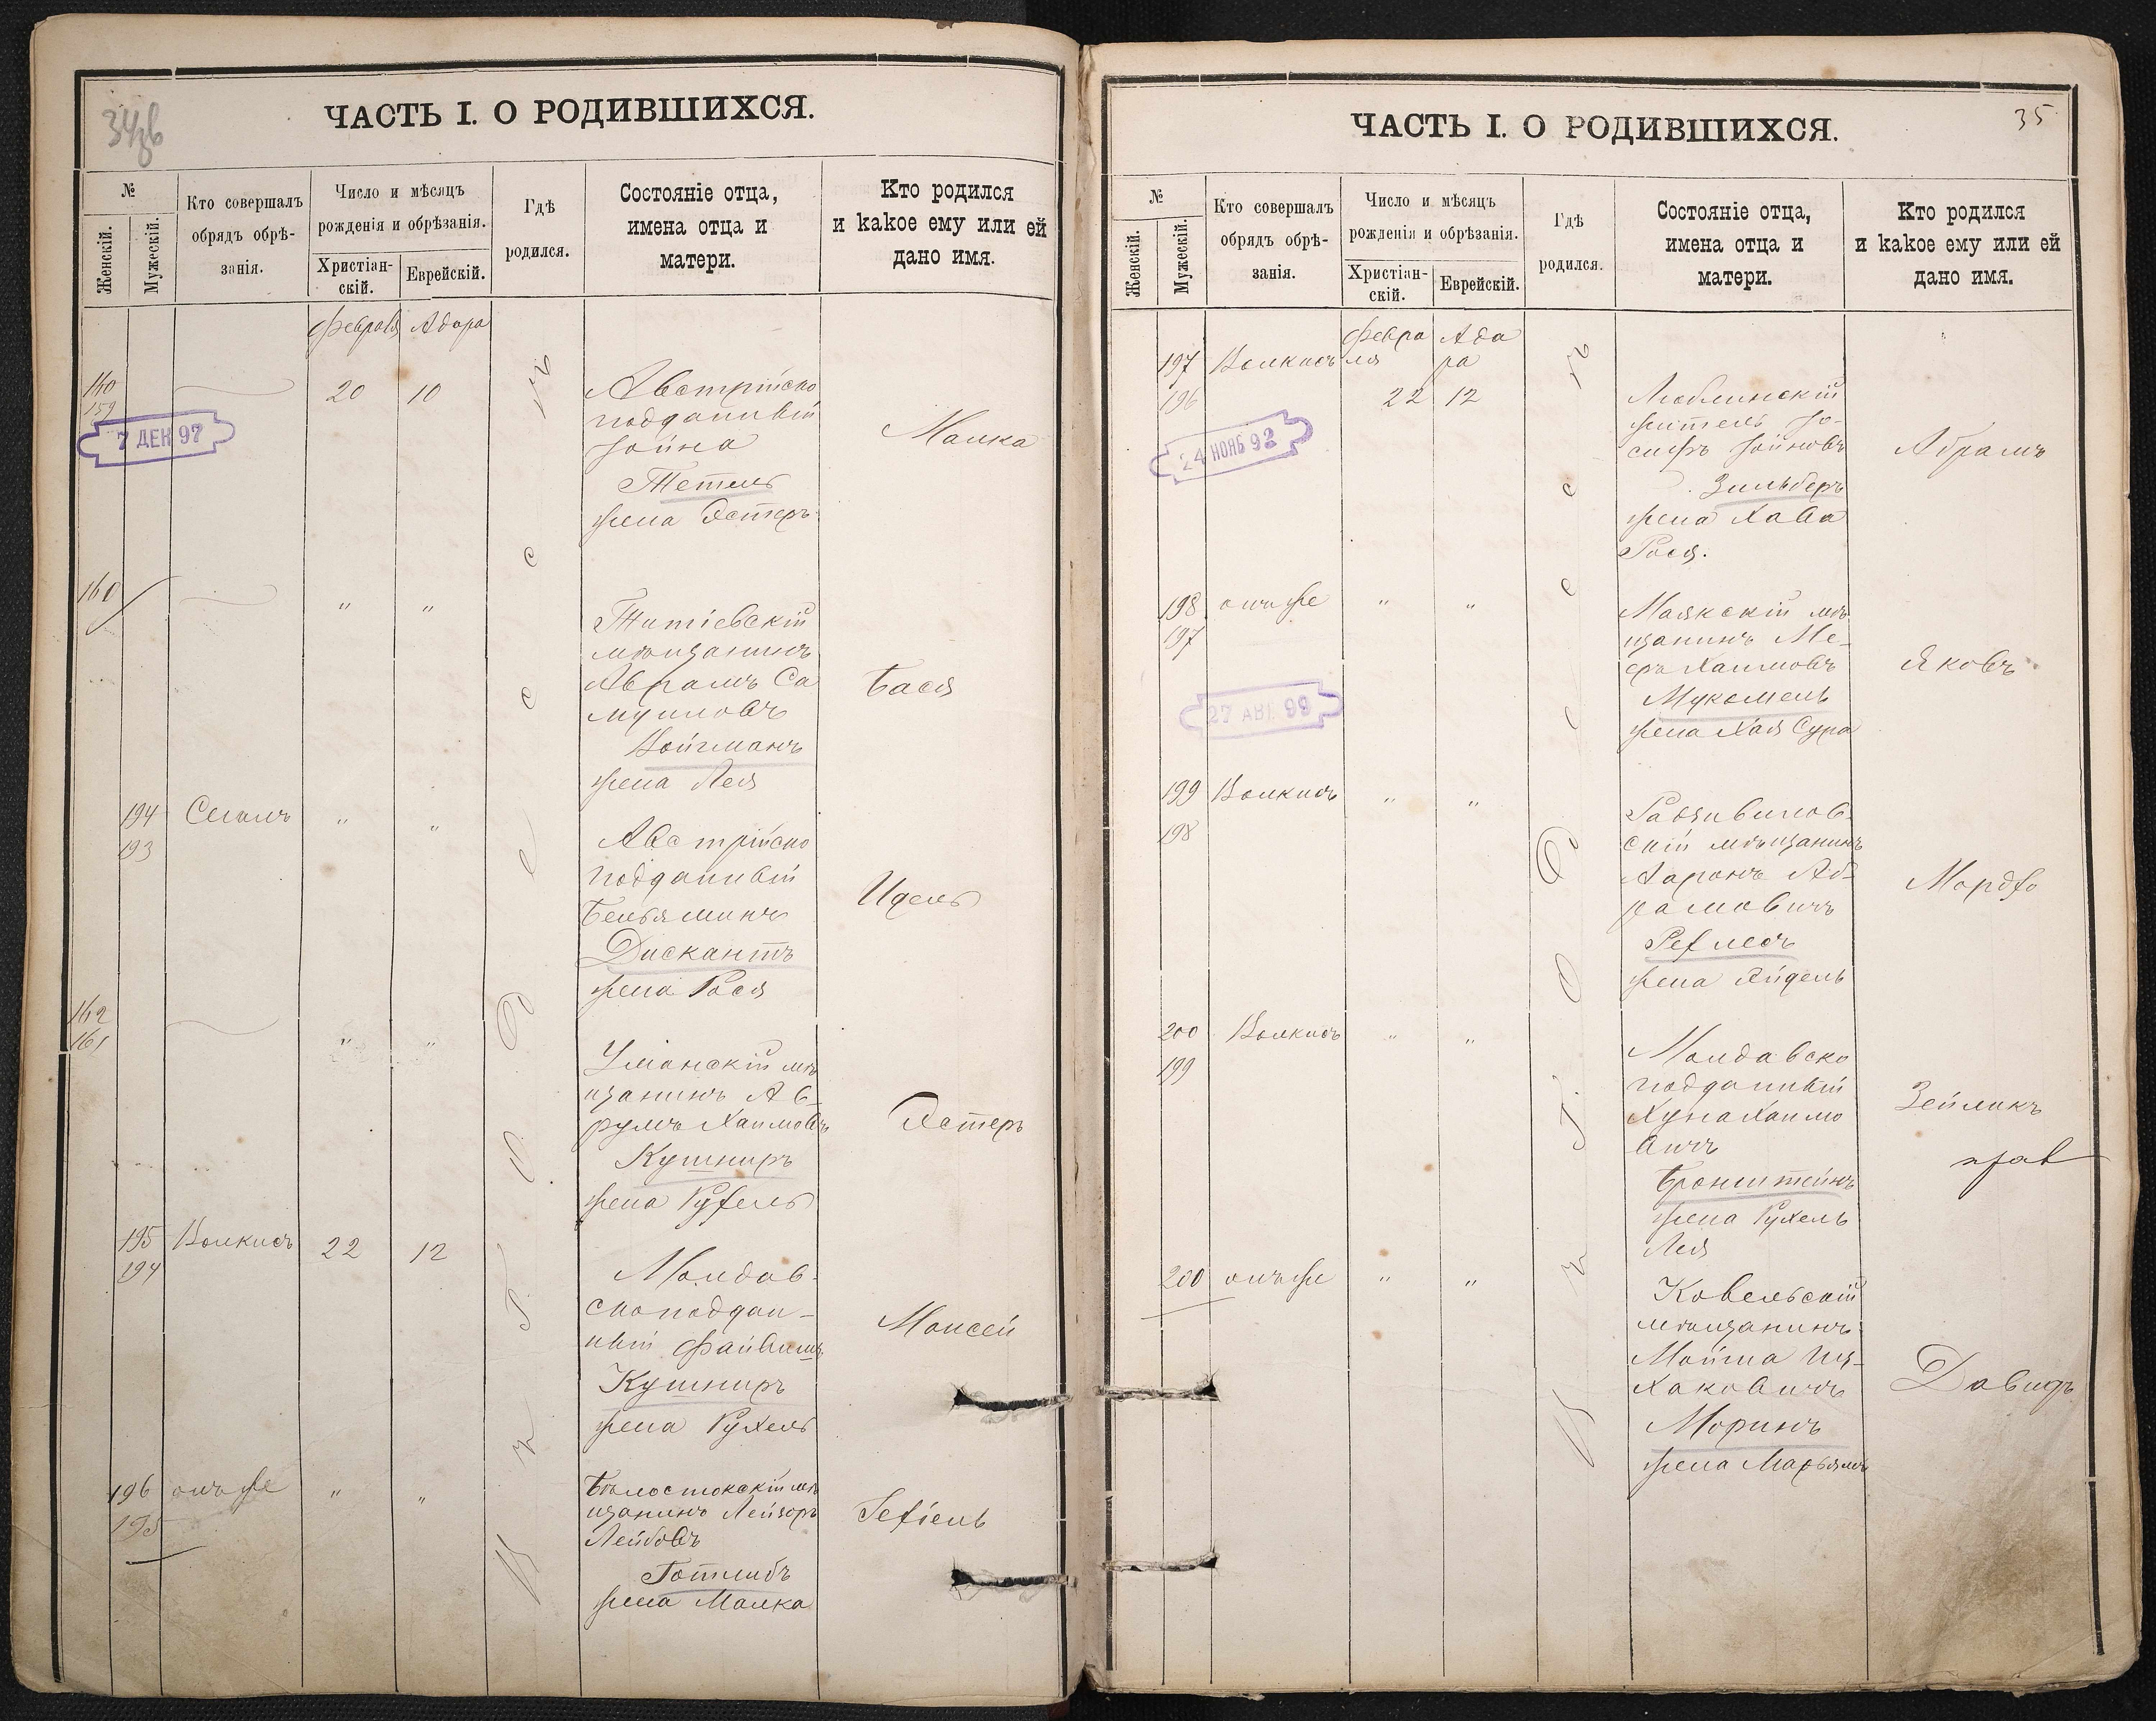 34 об
ЧАСТЬ I. О РОДИВШИХСЯ.
№
Женскій.
Мужескій.
Кто совершалъ
обрядъ обрѣ-
занія.
Число и мѣсяцъ
рожденія и обрѣзанія.
Христіан-
скій.
Еврейскій.
Гдѣ
родился.
Состояніе отца,
имена отца и
матери.
Кто родился
и какое ему или ей
дано имя.
Февраля Адара
160
159
7 ДЕК 97
20 10
Австрійско
подданный
Іойна
Тетель
жена Эстеръ
Малка
160
" "
Титіевскій
мѣщанинъ
Абрамъ Са
муиловъ
Войгманъ
жена Лея
Бася
194
193
Сегалъ " "
Австрійско
подданный
Беньяминъ
Дискантъ
жена Рося
Идель
162
161
" "
Уманскій мѣ
щанинъ Аб
румъ Хаимовъ
Кушниръ
жена Рухель
Эстеръ
195
194
Волкисъ 22 12
Молдав-
скоподдан-
ный Файвишъ
Кушниръ
жена Рухель
Моисей
196
195
онъ же " "
Бѣлостокскій мѣ
щанинъ Лейзоръ
Лейбовъ
Готлибъ
жена Малка
Іехіель
въ г. Одессѣ
35
ЧАСТЬ I. О РОДИВШИХСЯ.
№
Женскій.
Мужескій.
Кто совершалъ
обрядъ обрѣ-
занія.
Число и мѣсяцъ
рожденія и обрѣзанія.
Христіан-
скій.
Еврейскій.
Гдѣ
родился.
Состояніе отца,
имена отца и
матери.
Кто родился
и какое ему или ей
дано имя.
Февра Ада
ля ра
197
196
Волкисъ
22 12
24 НОЯБ 92
Люблинскій
житель Іо-
сифъ Іойновъ
Зильберъ
жена Хава
Рося.
Абрамъ
198
197
онъ же " "
27 АВГ. 99
Маякскій мѣ
щанинъ Ме-
еръ Хаимовъ
Мукомель
жена Хая Сура
Яковъ
199
198
Волкисъ " "
Радзивилов-
скій мѣщанинъ
Ааронъ Аб-
рамовичъ
жена Эйдель
Мордхо
200
199
Волкисъ " "
Молдавско
подданный
Хуна Хаимо
вичъ
Бронштейнъ
жена Рухель
Лея
Зейликъ
200
онъ же " "
Ковельскій
мѣщанинъ
Мойша Иц-
хаковичъ
Моринъ
жена Марьямъ
Давидъ
въ г. Одессѣ